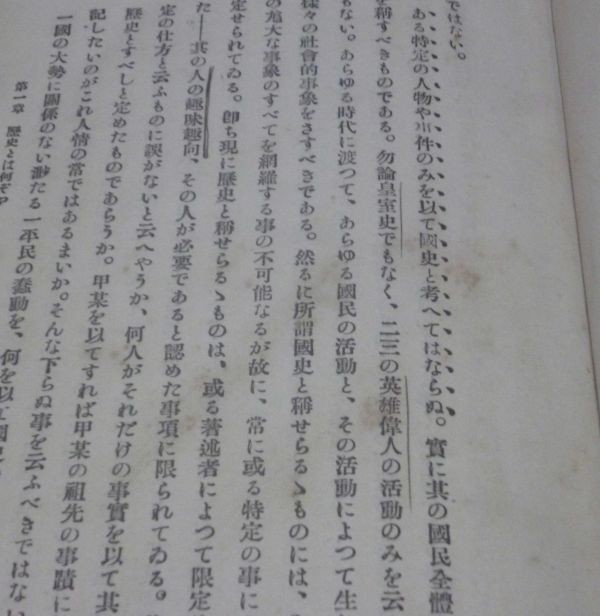 ではない。
ある特定の人物や事件のみを以て國史と考へてはならぬ。實に其の國民全體
を稱すべきものである。勿論皇室史でもなく、二三の英雄偉人の活動のみを云
もない。あらゆる時代に渡つて、あらゆる國民の活動と、その活動によつて生
樣々の社會的事象をさすべきである。然るに所謂國史と稱せらるゝものには、
の尨大な事象のすべてを網羅する事の不可能なるが故に、常に或る特定の事に
定せられてゐる。卽ち現に歷史と稱せらるゝものは、或る著述者によつて限定
た―其の人の趣味趣向、その人が必要であると認めた事項に限られてゐる。
定の仕方と云ふものに誤がないと云へやうか、何人がそれだけの事實を以て其
歷史とすべしと定めたものであらうか。甲某を以てすれば甲某の祖先の事蹟に
記したいのがこれ人情の常ではあるまいか。そんな下らぬ事を云ふべきではない
一國の大勢に關係のない渺たる一平民の蠢動を、何を以て國史
第一章 歷史とは何ぞや